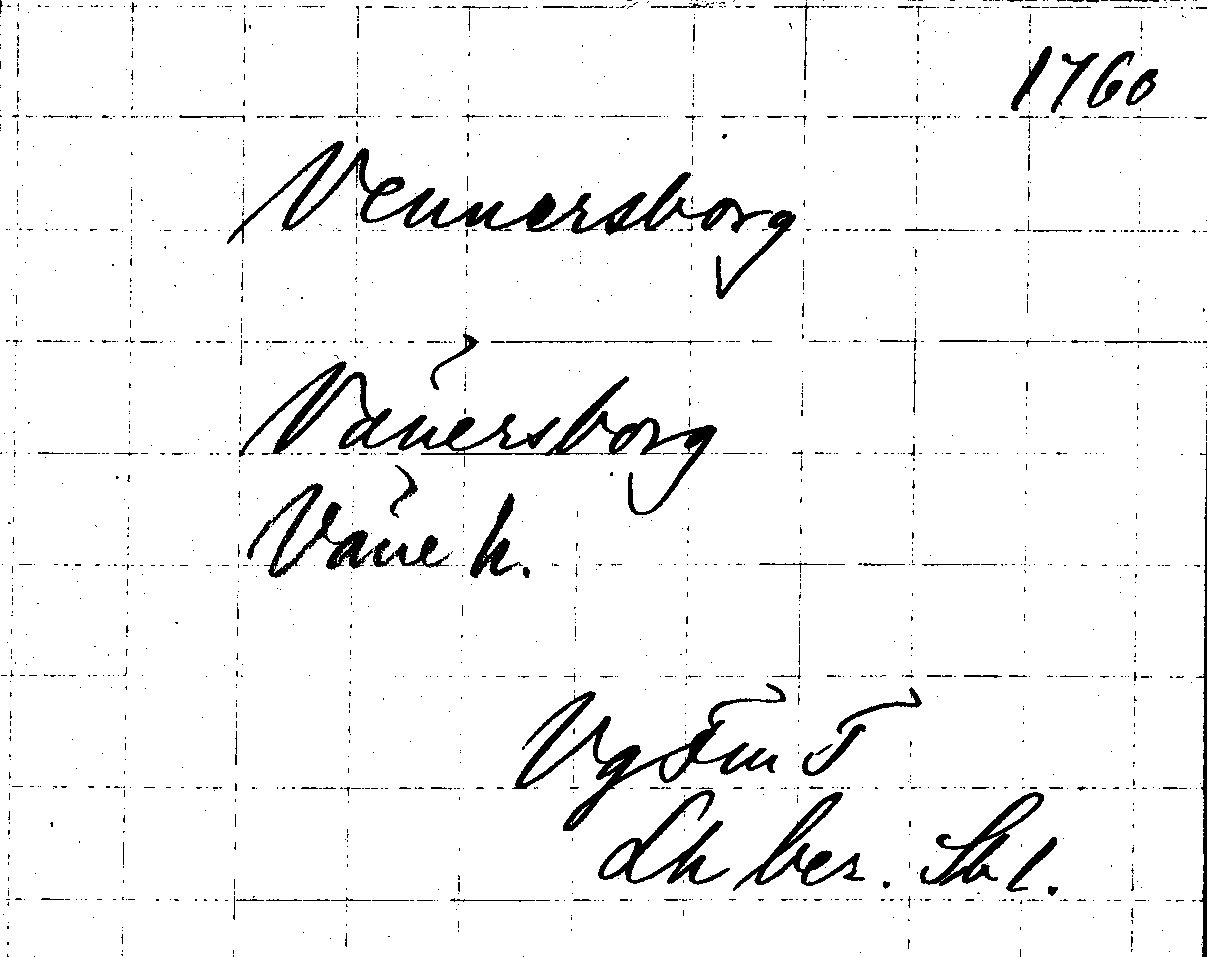 1760
Vennersborg
Vänersborg
Väne h.
Vg Fm T
Lh ber. Sk 1.